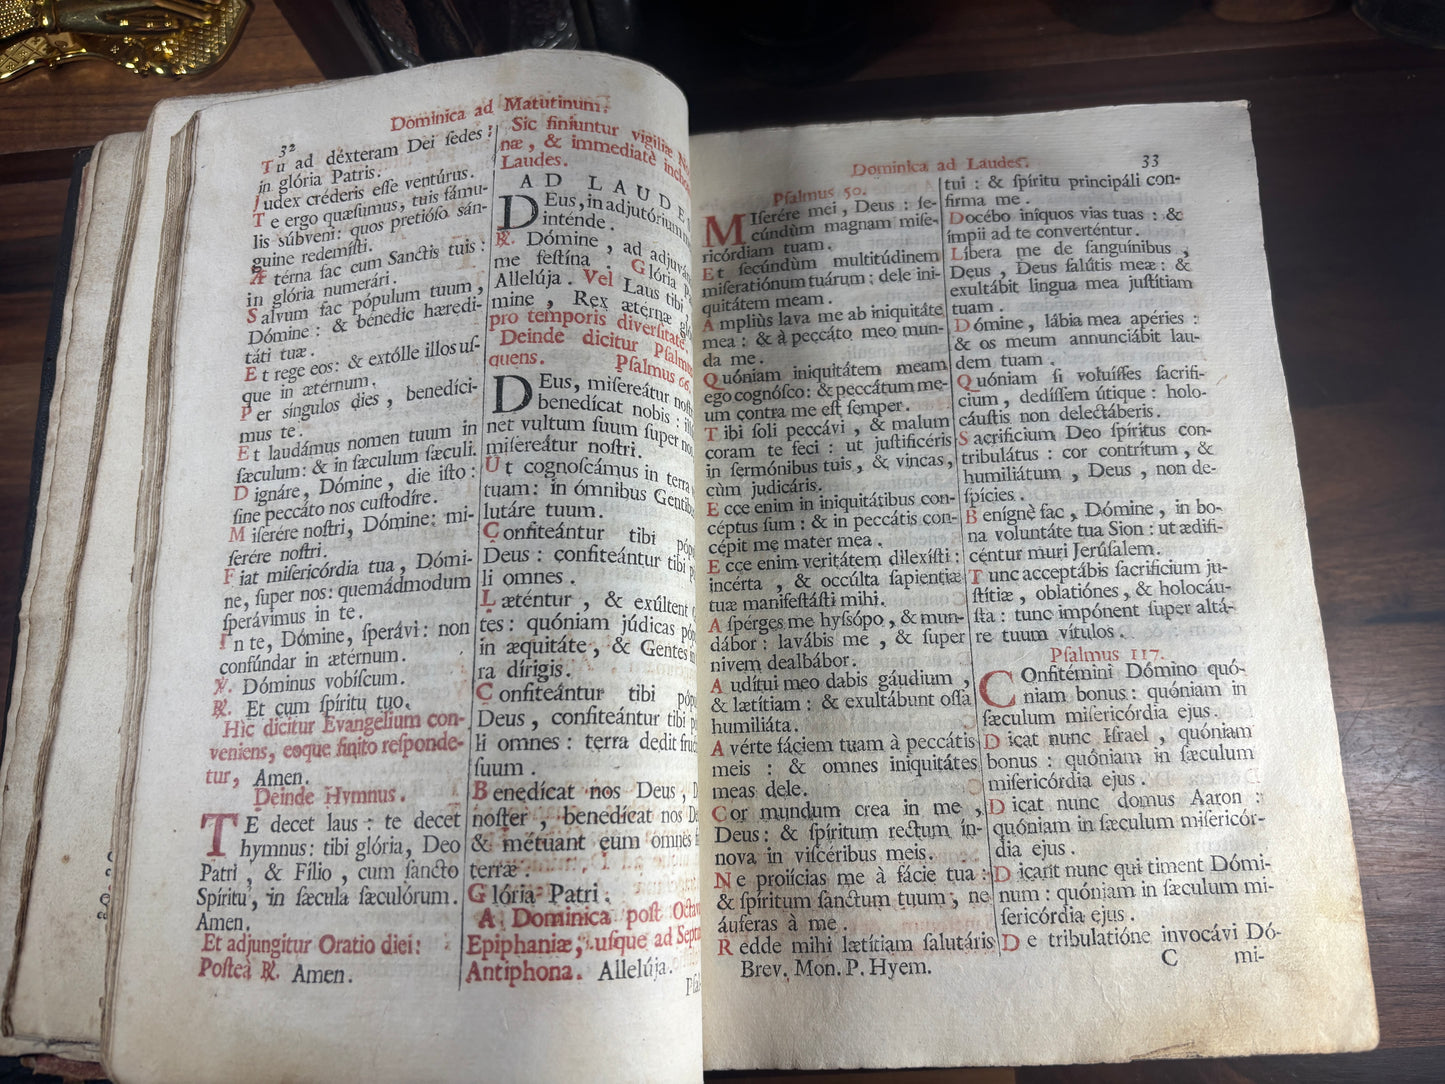 Dominica ad Matutinum.
32
Tu ad déxteram Dei ſedes:
in glória Patris.
Judex créderis eſſe ventúrus.
Te ergo quæſumus, tuis fámu-
lis súbveni: quos pretióſo sán-
guine redemíſti.
Ætérna fac cum Sanctis tuis:
in glória numerári.
Salvum fac pópulum tuum,
Dómine: & bénedic hæredi-
táti tuæ.
Et rege eos: & extólle illos uſ-
que in ætérnum.
Per síngulos dies, benedíci-
mus te.
Et laudámus nomen tuum in
ſæculum: & in ſæculum ſæculi.
Dignáre, Dómine, die iſto:
ſine peccáto nos cuſtodíre.
Miſerére noſtri, Dómine: mi-
ſerére noſtri.
Fiat miſericórdia tua, Dómi-
ne, ſuper nos: quemádmodum
ſperávimus in te.
In te, Dómine, ſperávi: non
confúndar in ætérnum.
℣. Dóminus vobíſcum.
℟. Et cum ſpíritu tuo.
Hìc dicitur Evangelium con-
veniens, eoque finito reſponde-
tur, Amen.
Deinde Hymnus.
TE decet laus: te decet
hymnus: tibi glória, Deo
Patri, & Fílio, cum ſancto
Spíritu, in ſæcula ſæculórum.
Amen.
Et adjungitur Oratio diei:
Poſteà ℟. Amen.
Sic finiuntur vigiliæ
næ, & immediatè
Laudes.
AD LAUDE
DEus, in adjutórium
inténde.
℟. Dómine, ad
me feſtína. Glória
Allelúja. Vel Laus tibi
mine, Rex ætérnæ
pro temporis diverſitate.
Deinde dicitur
quens. Pſalmus 66.
DEus, miſereátur
benedícat nobis:
net vultum ſuum ſuper
miſereátur noſtri.
Ut cognoſcámus in terra
tuam: in ómnibus
lutáre tuum.
Confiteántur tibi
Deus: confiteántur tibi
li omnes.
Læténtur, & exúltent
tes: quóniam júdicas
in æquitáte, & Gentes in
ra dírigis.
Confiteántur tibi
Deus, confiteántur tibi
li omnes: terra dedit
ſuum.
Benedícat nos Deus,
noſter, benedícat nos
& métuant eum omnes
terræ.
Glória Patri.
A Dominica poſt
Epiphaniæ, uſque ad
Antiphona. Allelúja.
Dominica ad Laudes. 33
Pſalmus 50.
MIſerére mei, Deus: ſe-
cúndùm magnam miſe-
ricórdiam tuam.
Et ſecúndùm multitúdinem
miſeratiónum tuárum: dele ini-
quitátem meam.
Ampliùs lava me ab iniquitáte
mea: & à peccáto meo mun-
da me.
Quóniam iniquitátem meam
ego cognóſco: & peccátum me-
um contra me eſt ſemper.
Tibi ſoli peccávi, & malum
coram te feci: ut juſtificéris
in ſermónibus tuis, & vincas,
cùm judicáris.
Ecce enim in iniquitátibus con-
céptus ſum: & in peccátis con-
cépit me mater mea.
Ecce enim veritátem dilexíſti:
incérta, & occúlta ſapientiæ
tuæ manifeſtáſti mihi.
Aſpérges me hyſſópo, & mun-
dábor: lavábis me, & ſuper
nivem dealbábor.
Audítui meo dabis gáudium,
& lætítiam: & exultábunt oſſa
humiliáta.
Avérte fáciem tuam à peccátis
meis: & omnes iniquitátes
meas dele.
Cor mundum crea in me,
Deus: & ſpíritum rectum ín-
nova in viſcéribus meis.
Ne proiícias me à fácie tua:
& ſpíritum ſanctum tuum, ne
áuferas à me.
Redde mihi lætítiam ſalutáris
Brev. Mon. P. Hyem.
tui: & ſpíritu principáli con-
firma me.
Docébo iníquos vias tuas: &
ímpii ad te converténtur.
Líbera me de ſanguínibus,
Deus, Deus ſalútis meæ: &
exultábit lingua mea juſtítiam
tuam.
Dómine, lábia mea apéries:
& os meum annunciábit lau-
dem tuam.
Quóniam ſi voluíſſes ſacrifí-
cium, dedíſſem útique: holo-
cáuſtis non delectáberis.
Sacrifícium Deo ſpíritus con-
tribulátus: cor contrítum, &
humiliátum, Deus, non de-
ſpícies.
Benígnè fac, Dómine, in bo-
na voluntáte tua Sion: ut ædifi-
céntur muri Jerúſalem.
Tunc acceptábis ſacrifícium ju-
ſtítiæ, oblatiónes, & holocáu-
ſta: tunc impónent ſuper altá-
re tuum vítulos.
Pſalmus 117.
COnfitémini Dómino quó-
niam bonus: quóniam in
ſæculum miſericórdia ejus.
Dicat nunc Iſrael, quóniam
bonus: quóniam in ſæculum
miſericórdia ejus.
Dicat nunc domus Aaron:
quóniam in ſæculum miſericór-
dia ejus.
Dicant nunc qui timent Dómi-
num: quóniam in ſæculum mi-
ſericórdia ejus.
De tribulatióne invocávi Dó-
C mi-